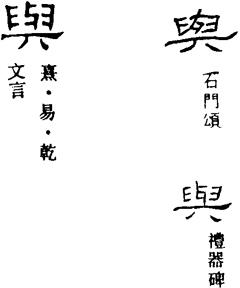 與
石門頌
與
禮器碑
與
熹·易·乾
文言